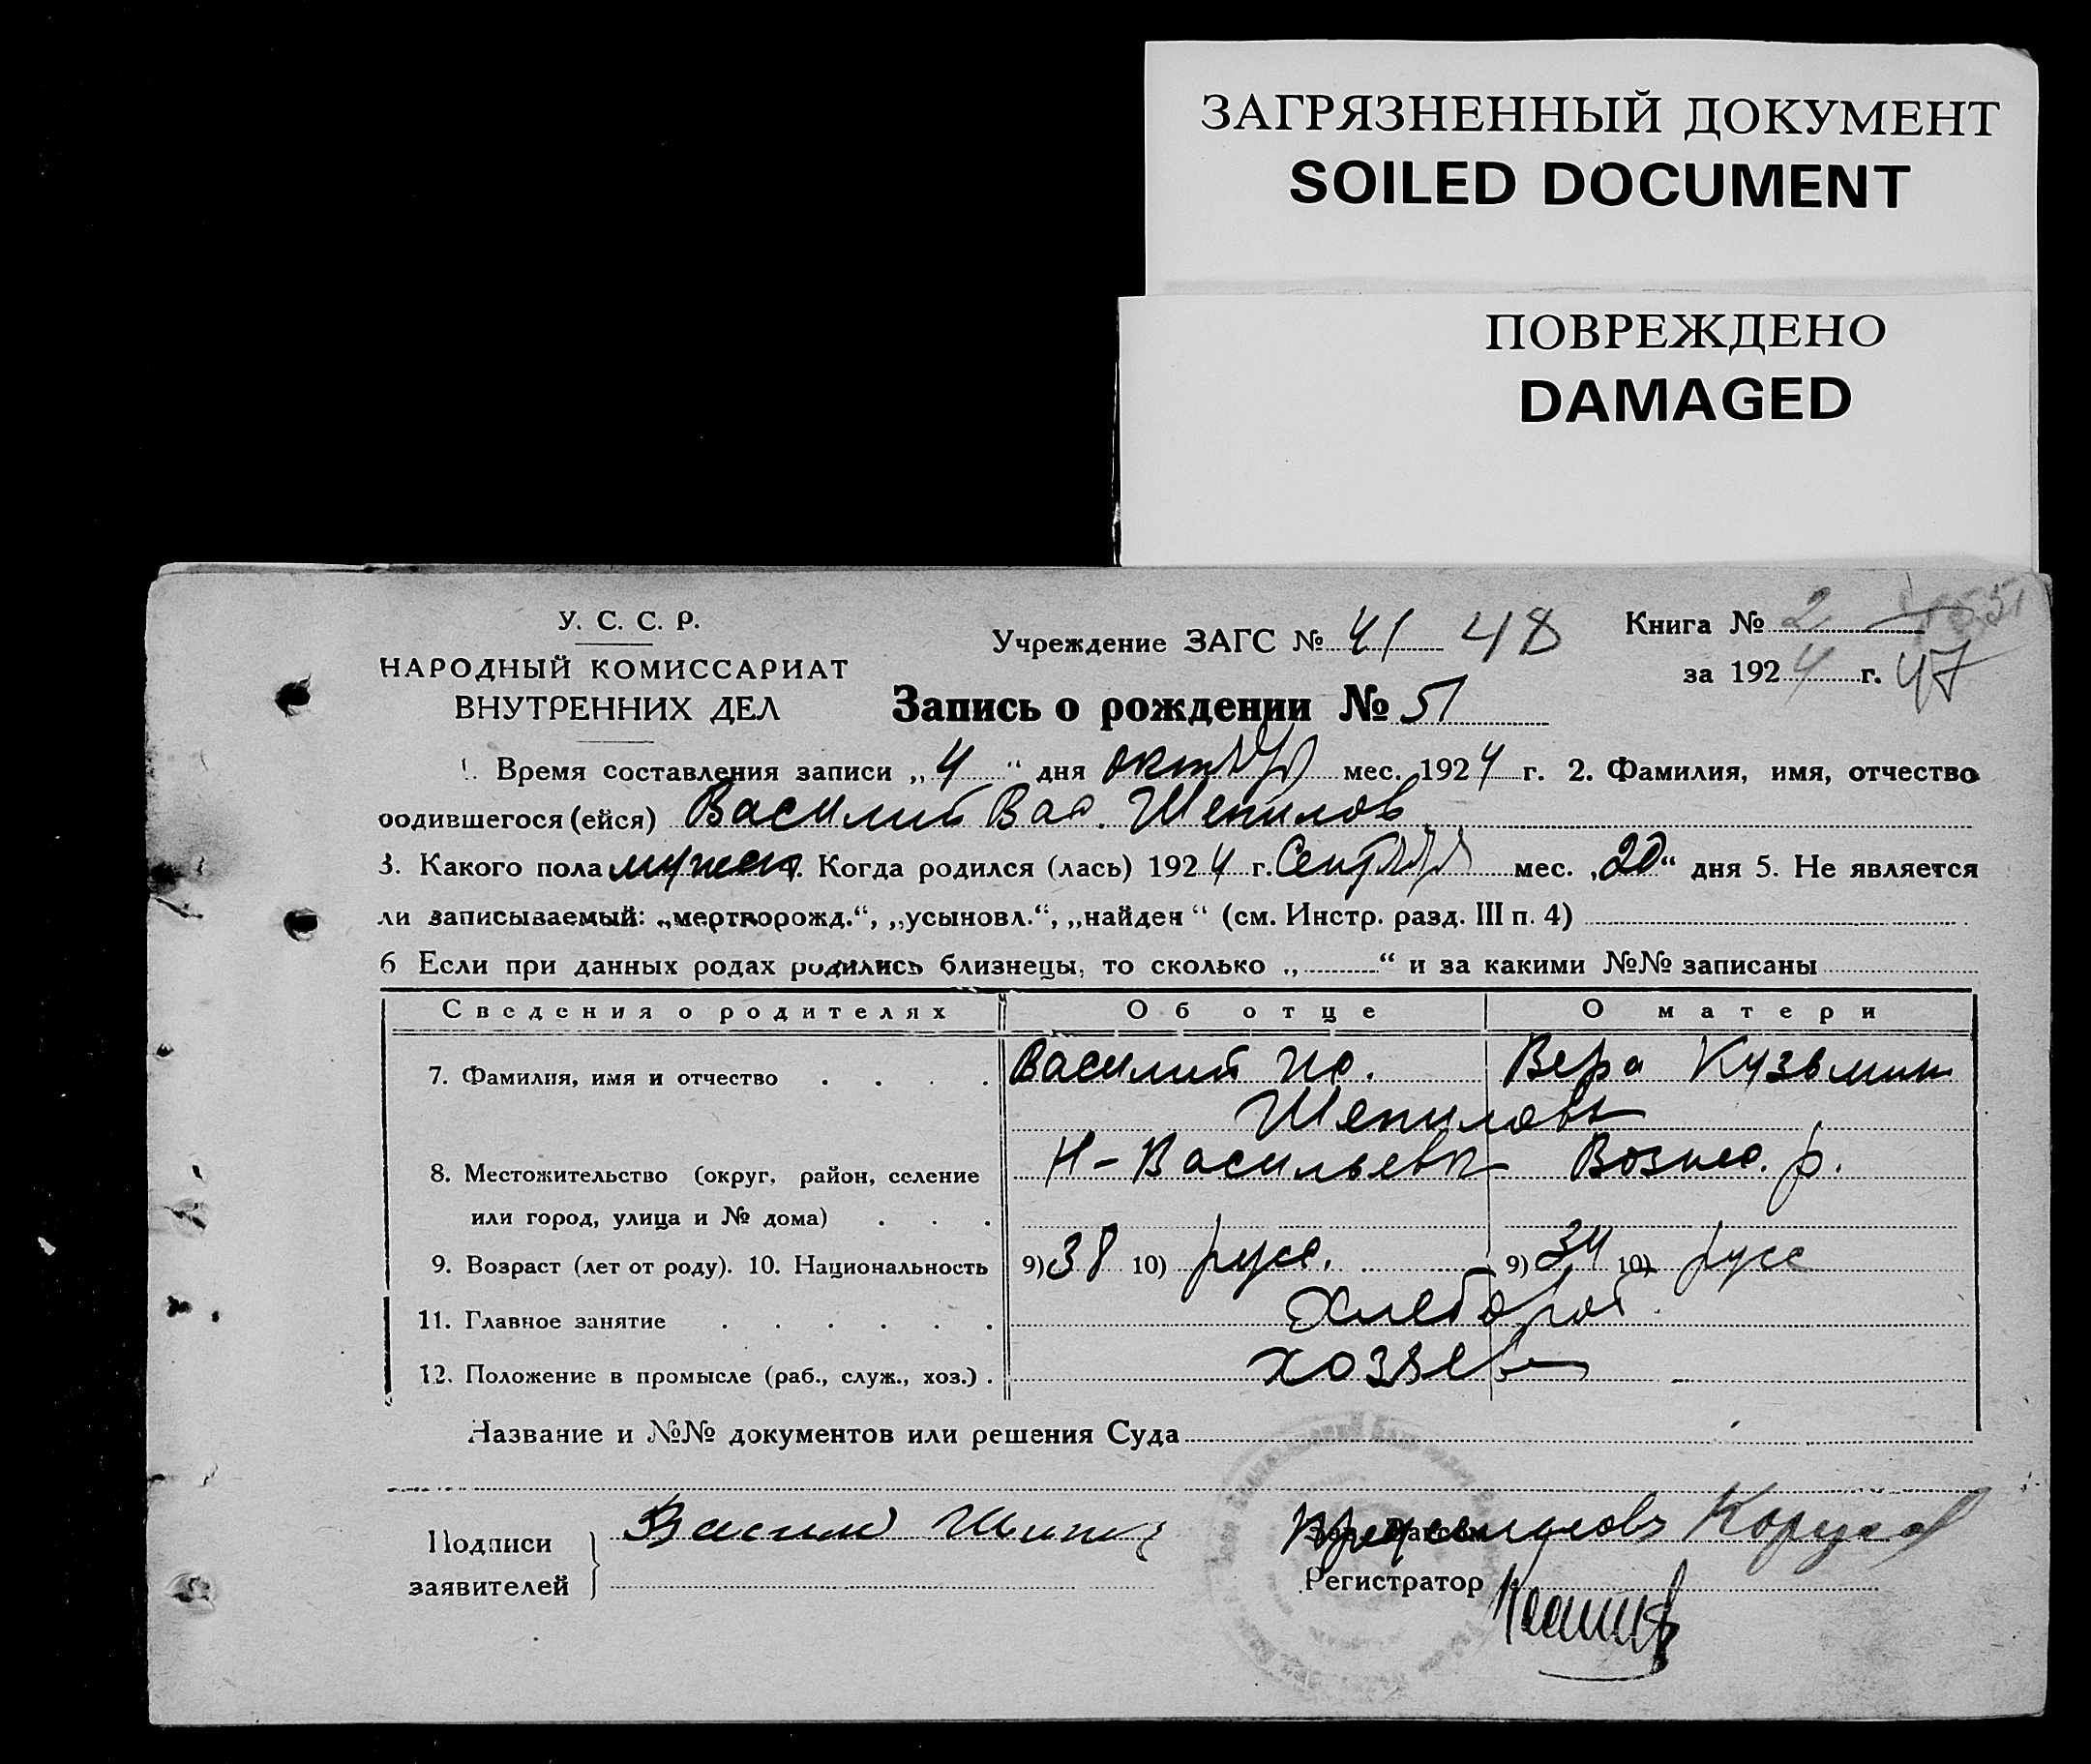 ЗАГРЯЗНЕННЫЙ ДОКУМЕНТ
SOILED DOCUMENT
ПОВРЕЖДЕНО
DAMAGED
У. С. С. Р.
НАРОДНЫЙ КОМИССАРИАТ
ВНУТРЕННИХ ДЕЛ
Учреждение ЗАГС № 41 48
Книга № 2
за 1924 г. 47
Запись о рождении № 51
1. Время составления записи „4“ дня октябр мес. 1924 г. 2. Фамилия, имя, отчество
родившегося (ейся) Василий Вас. Шепилов
3. Какого пола мужск. Когда родился (лась) 1924 г. Сентября мес. „20“ дня 5. Не является
ли записываемый: „мертворожд.“, „усыновл.“, „найден“ (см. Инстр. разд. III п. 4)
6 Если при данных родах родились близнецы, то сколько „ “ и за какими №№ записаны
Сведения о родителях Об отце О матери
7. Фамилия, имя и отчество Василий Ио. Вера Кузьмин
Шепиловы
8. Местожительство (округ, район, селение Н-Васильевк Вознес. р.
или город, улица и № дома)
9. Возраст (лет от роду). 10. Национальность 9) 38 10) русс. 9) 34 10) русс
11. Главное занятие Хлебороб
12. Положение в промысле (раб., служ., хоз.) хозяев
Название и №№ документов или решения Суда
Подписи
заявителей
Васили Шипи
Регистратор